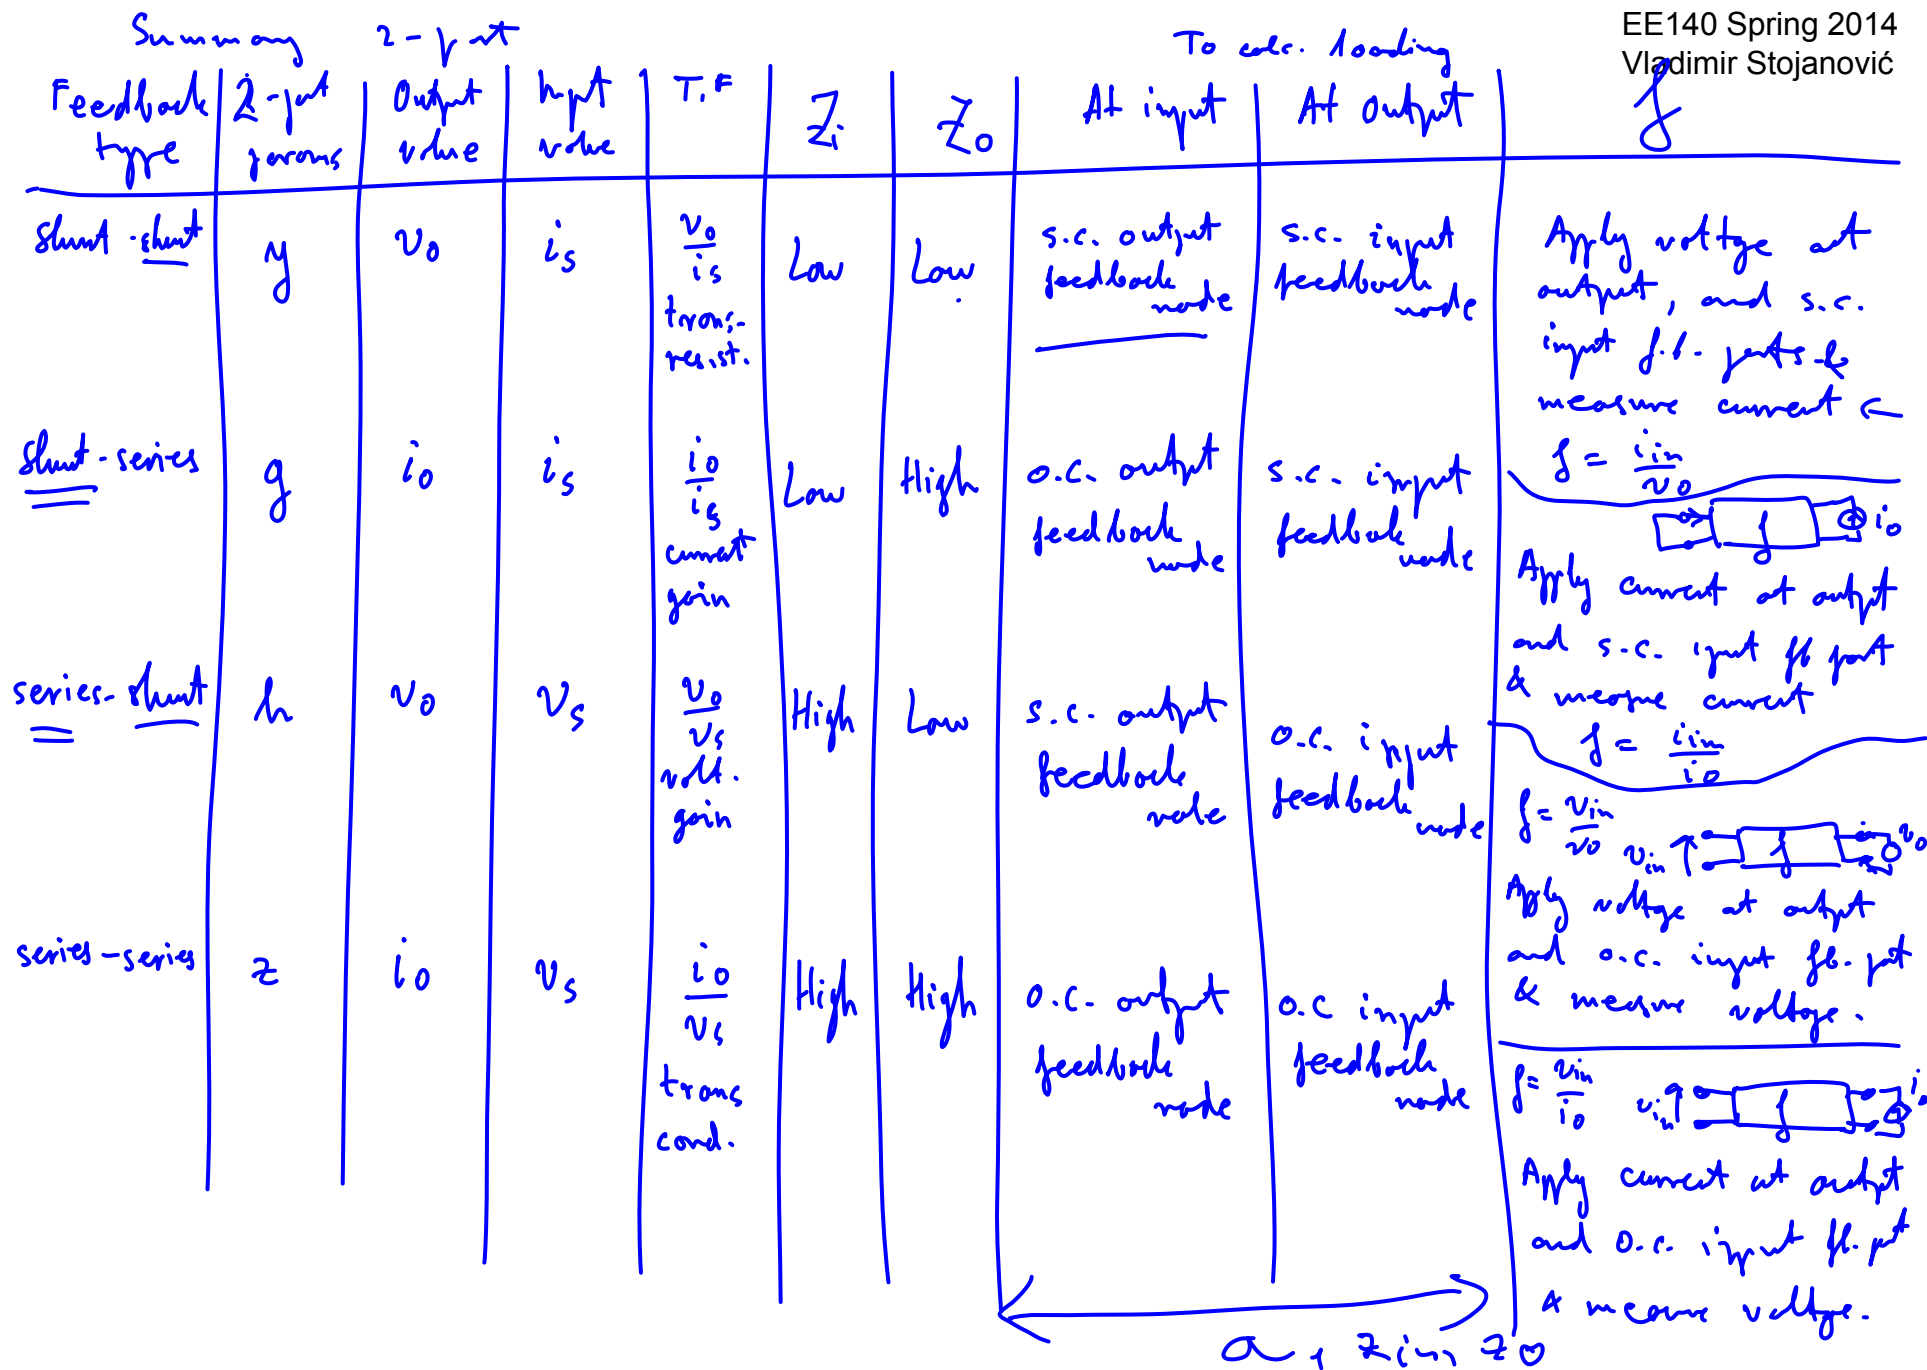 EE140 Spring 2014
Vladimir Stojanović
Summary 2-port
To calc. loading
Feedback type
2-port params
Output value
Input value
T.F
Zi
Zo
At input
At output
f
shunt-shunt
y
vo
is
vo/is
trans-
resist.
Low
Low
s.c. output
feedback
node
s.c. input
feedback
node
Apply voltage at
output, and s.c.
input f.b. ports &
measure current
f = iin/vo
shunt-series
g
io
is
io/is
current
gain
Low
High
o.c. output
feedback
node
s.c. input
feedback
node
f
io
Apply current at output
and s.c. iput fb port
& measure current
f = iin/io
series-shunt
h
vo
vs
vo/vs
volt.
gain
High
Low
s.c. output
feedback
node
o.c. input
feedback
node
f = vin/vo
vin
f
vo
Apply voltage at output
and o.c. input fb. port
& measure voltage.
series-series
z
io
vs
io/vs
trans
cond.
High
High
o.c. output
feedback
node
o.c input
feedback
node
f = vin/io
vin
f
io
Apply current at output
and o.c. input fb. port
& measure voltage.
a, zin, zo